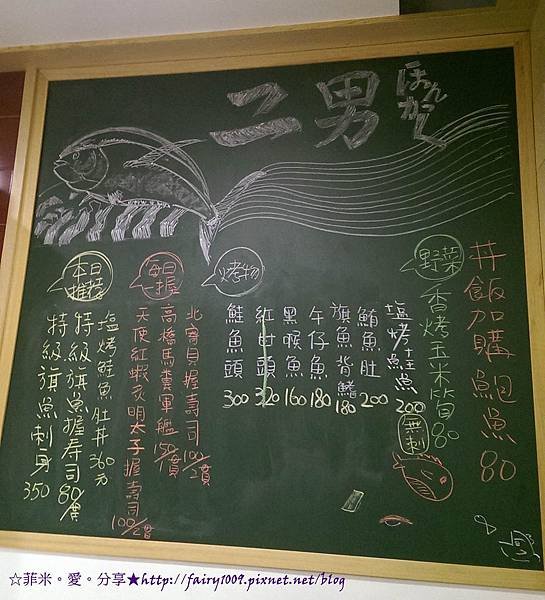 二男
ほんかく
丼飯加購鮑魚80
野菜
香烤玉米筍80
塩烤鮭魚200
無刺
鮪魚肚200
旗魚背鰭180
午仔魚180
黑喉魚160
紅魽頭320
鮭魚頭300
烤物
每日一握
北寄貝握壽司100/2貫
高橋馬糞軍艦150/貫
天使紅蝦炙明太子握壽司100/2貫
本日推薦
塩烤鮭魚肚丼360元
特級旗魚握寿司80/貫
特級旗魚刺身350
☆菲米。愛。分享★http://fairy1009.pixnet.net/blog